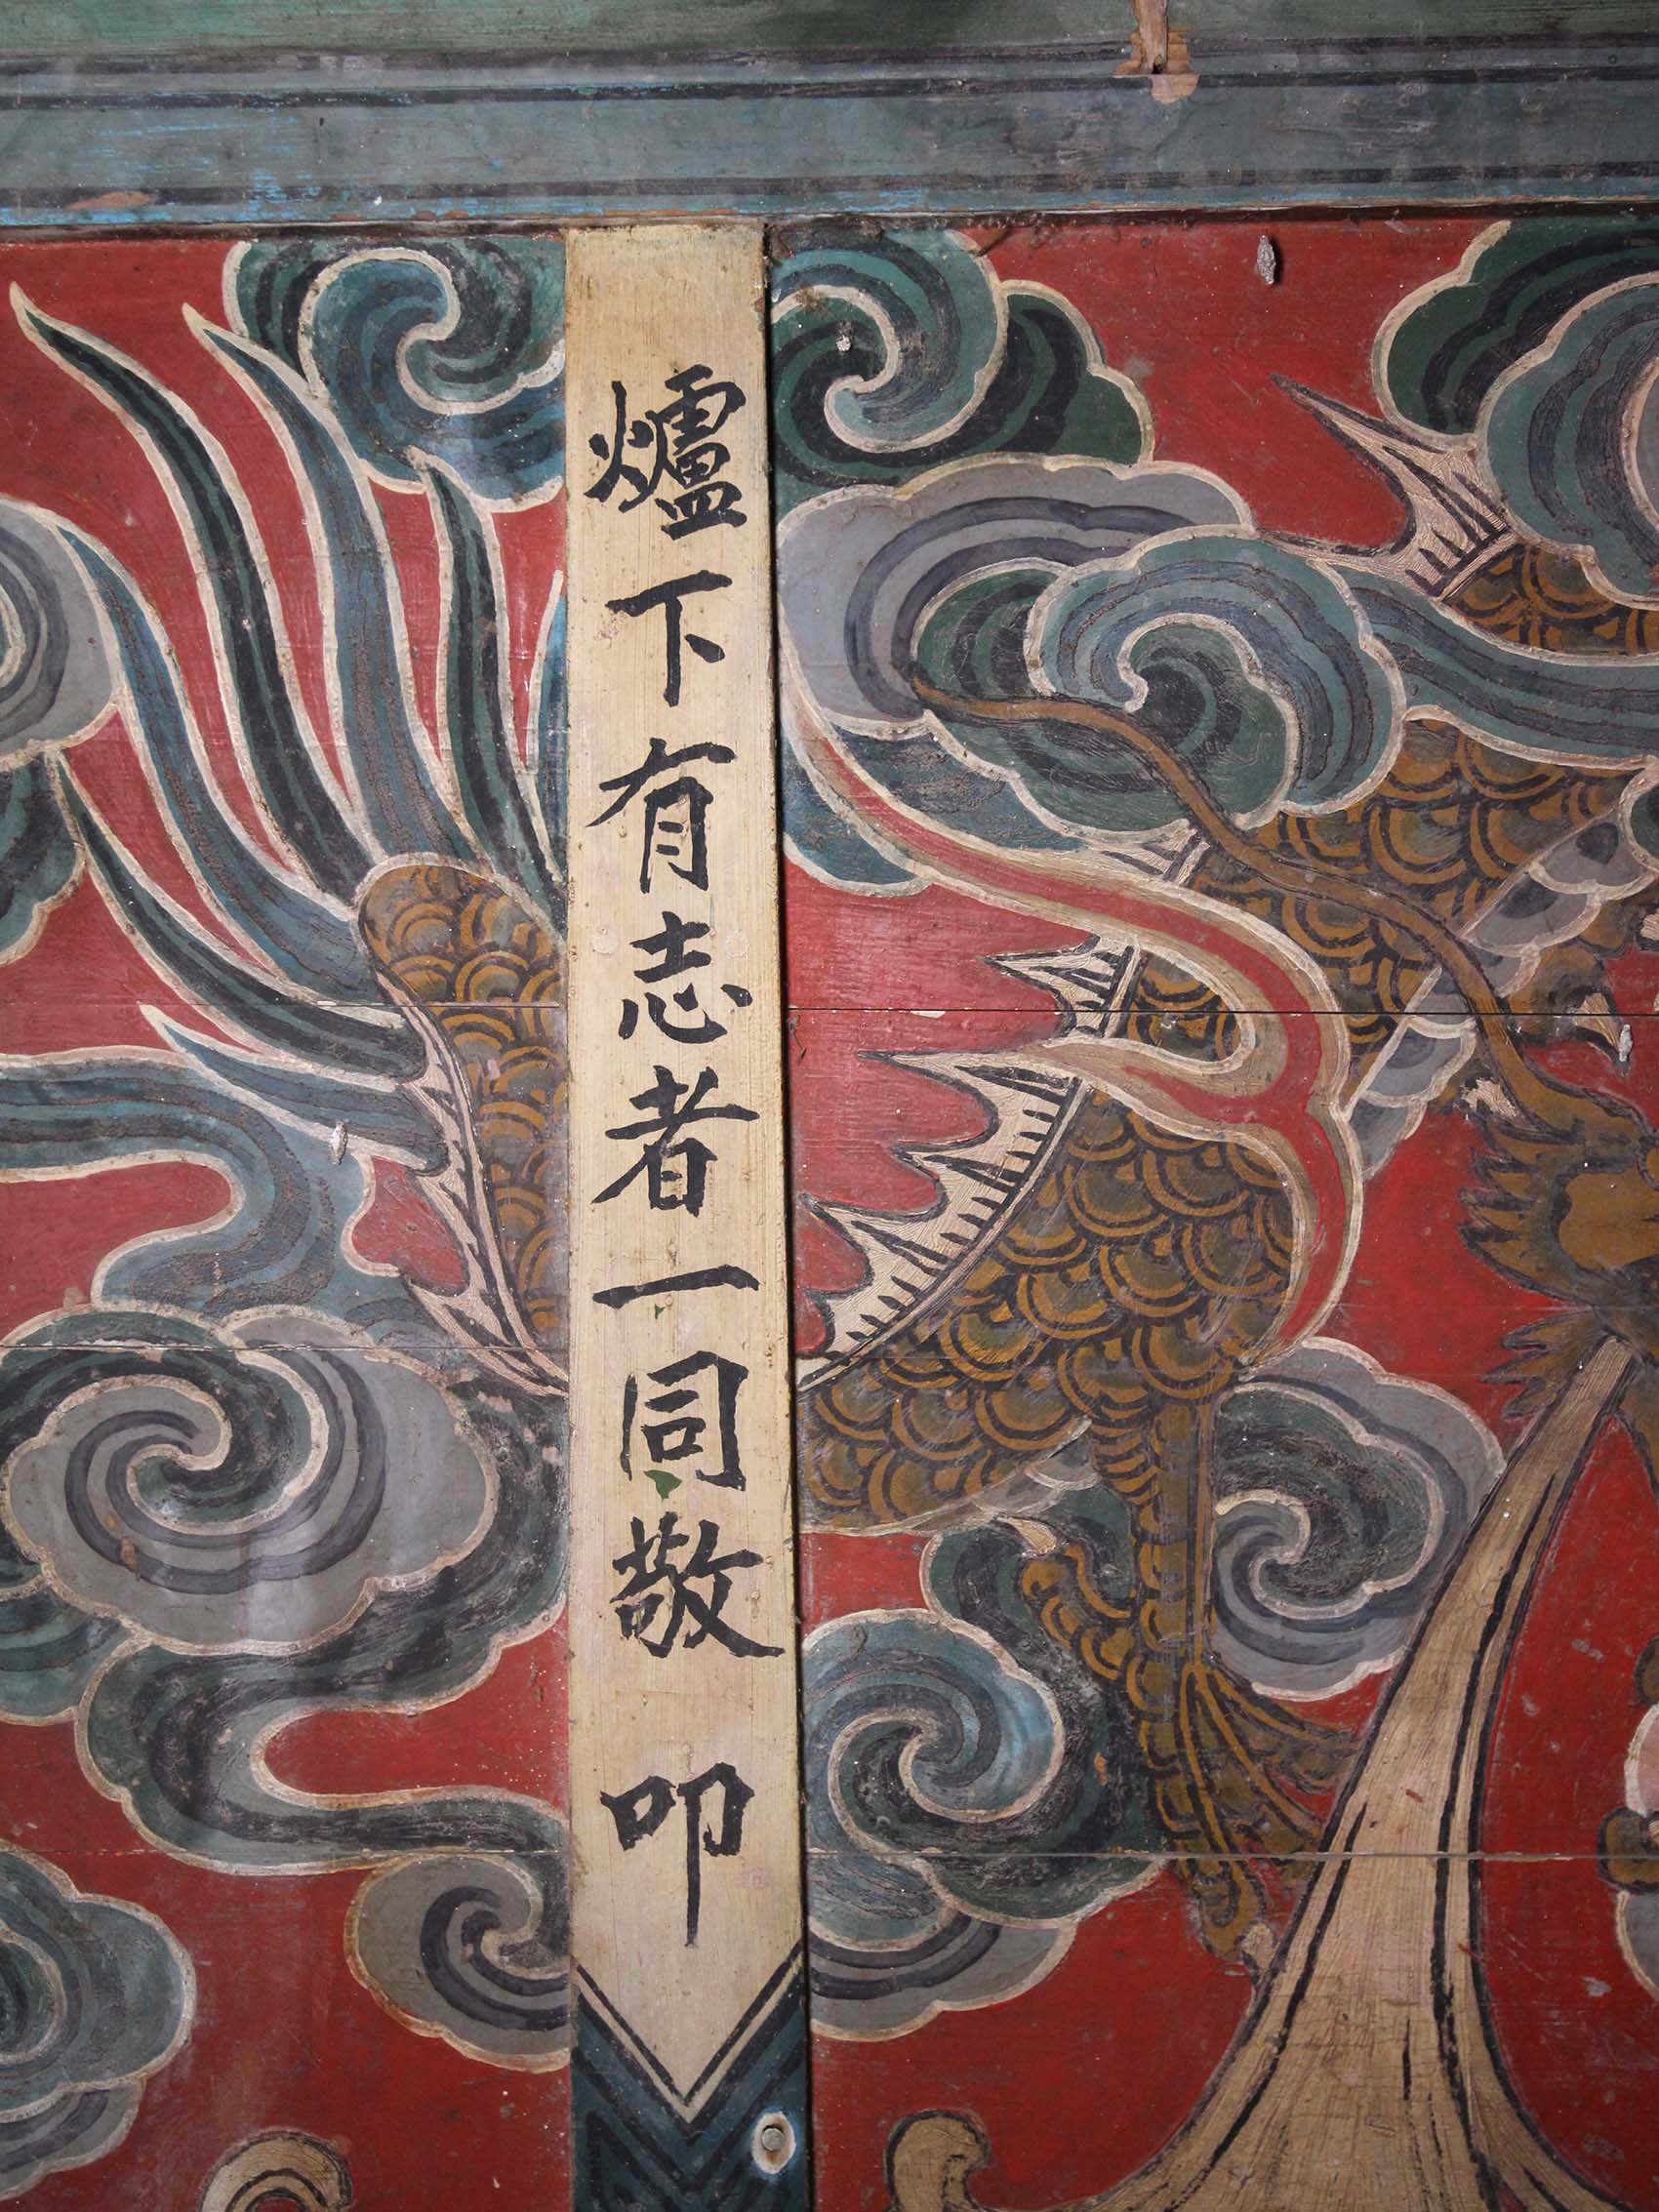 爐下有志者一同敬叩